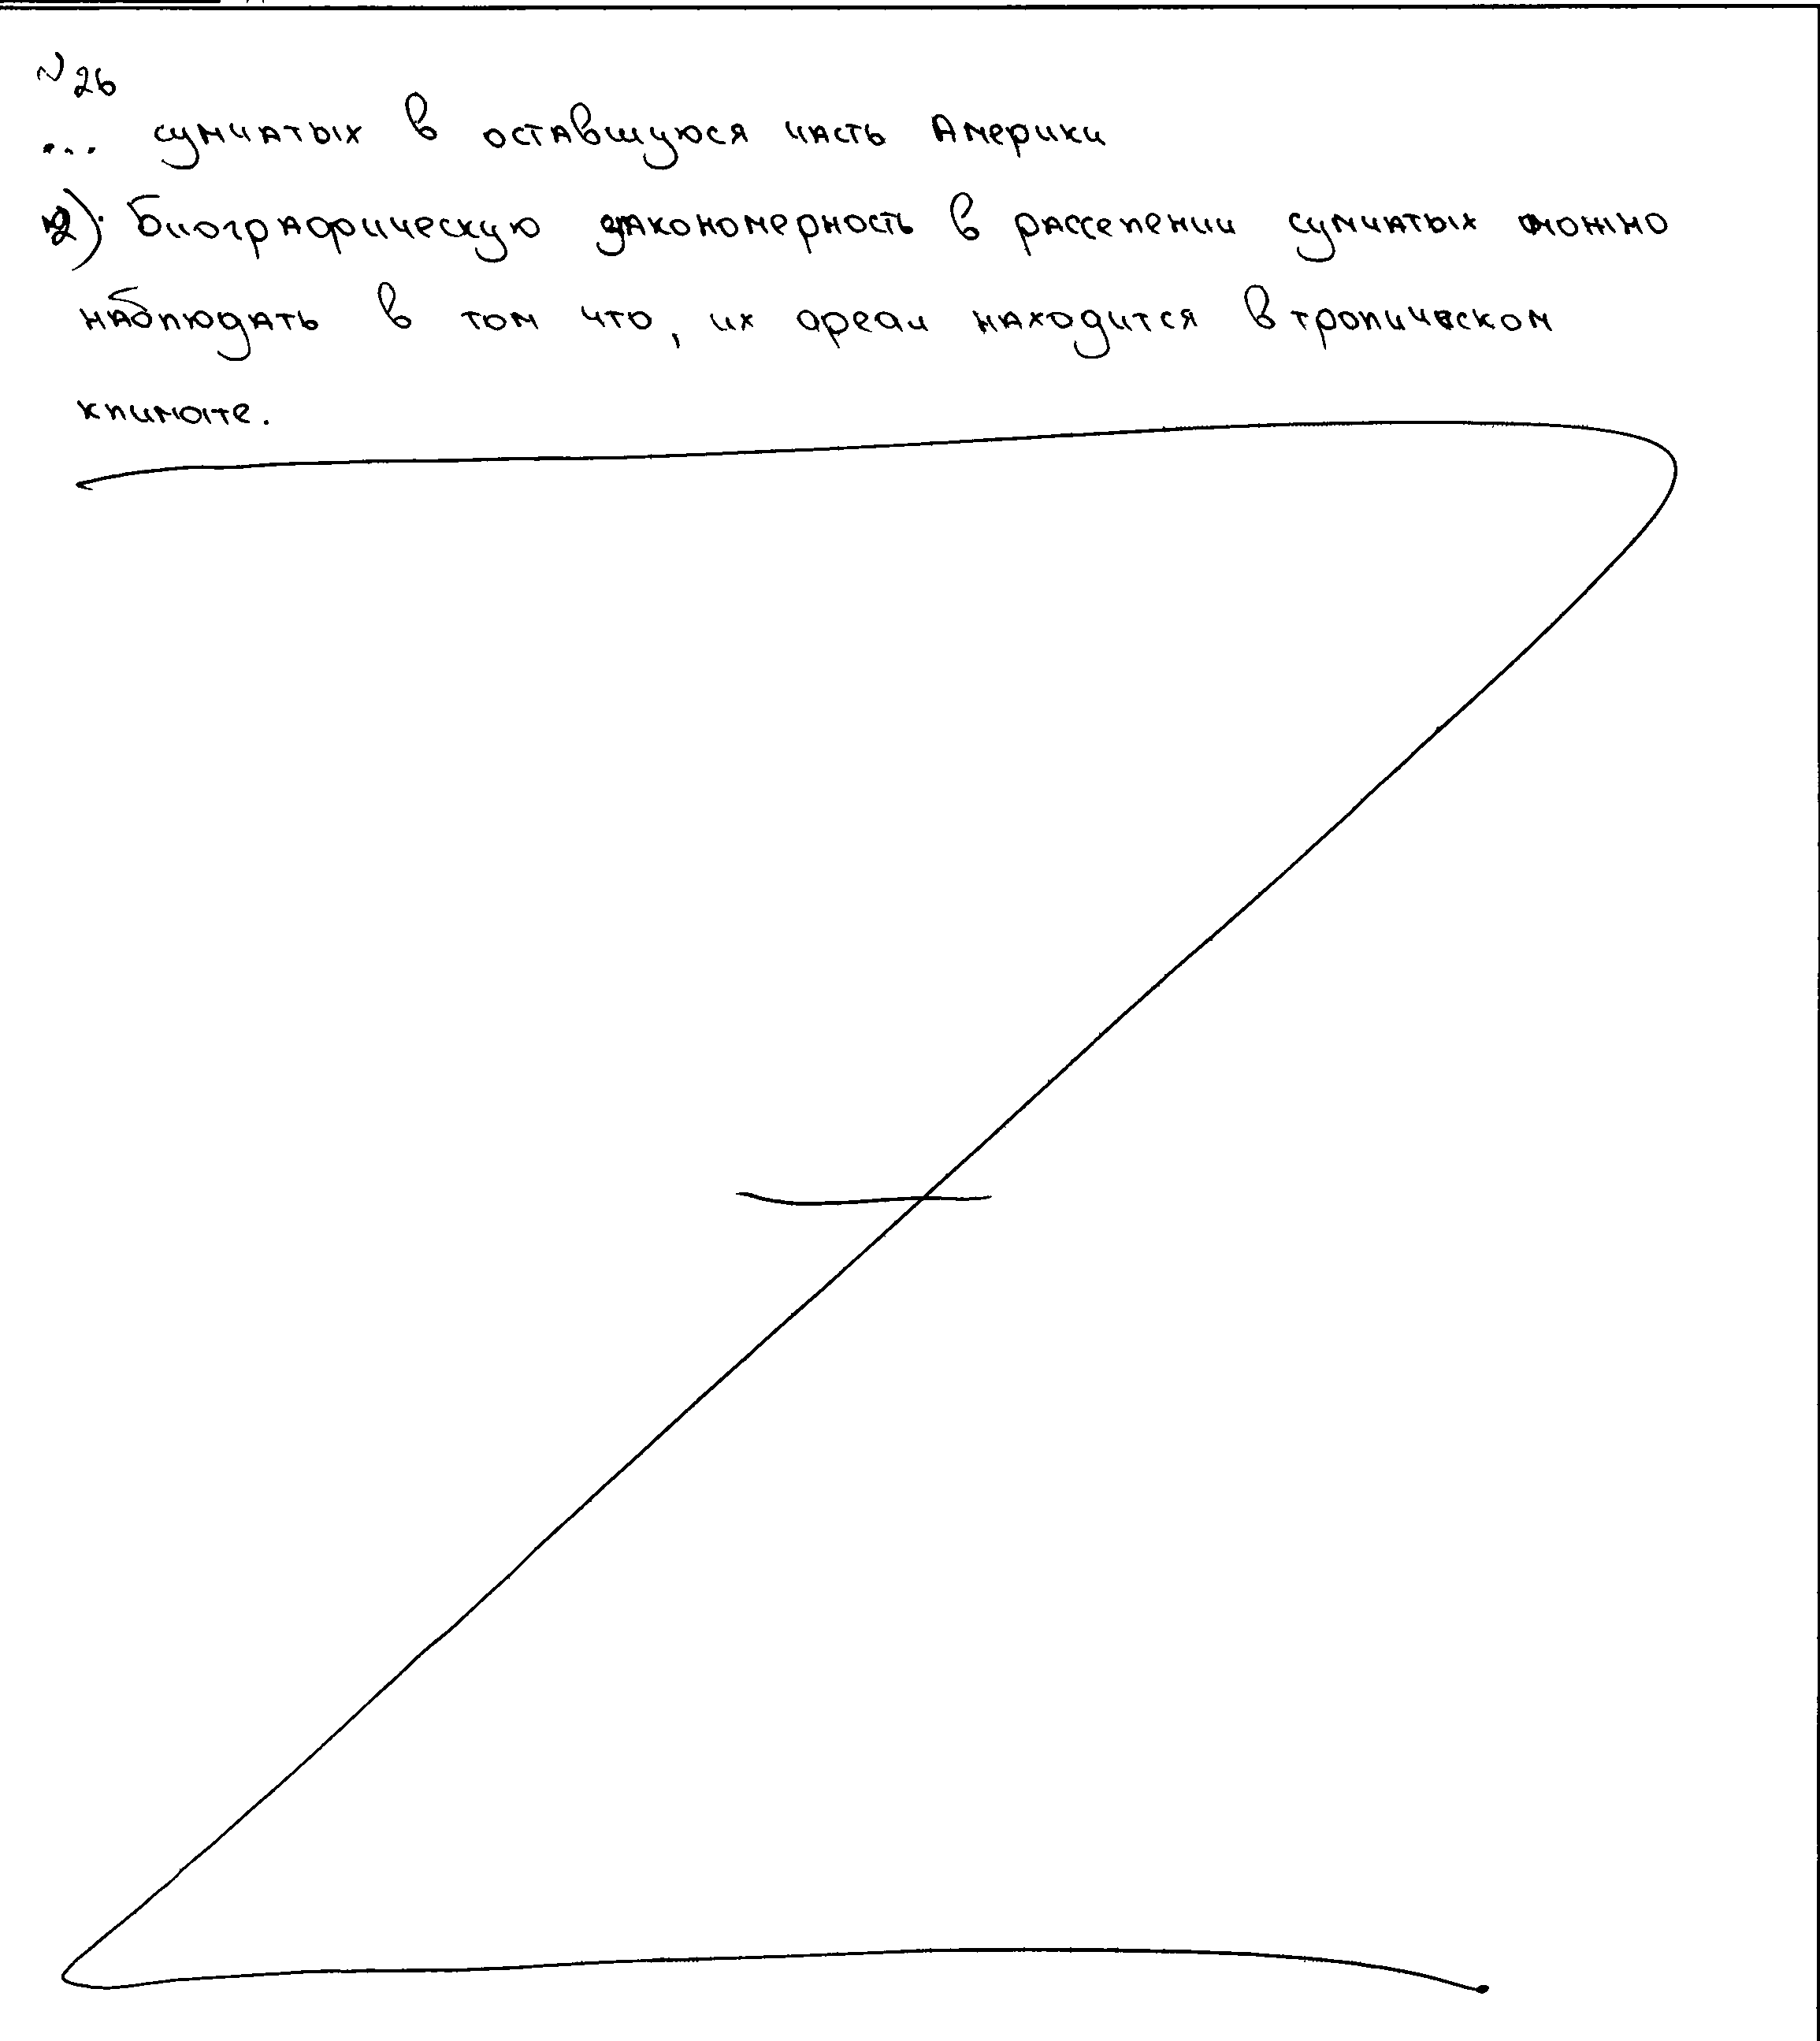 №26
... сумчатых в оставшуюся часть Америки
2). Биографическую закономерность в расселении сумчатых можно
наблюдать в том что, их ареал находится в тропическом
климате.